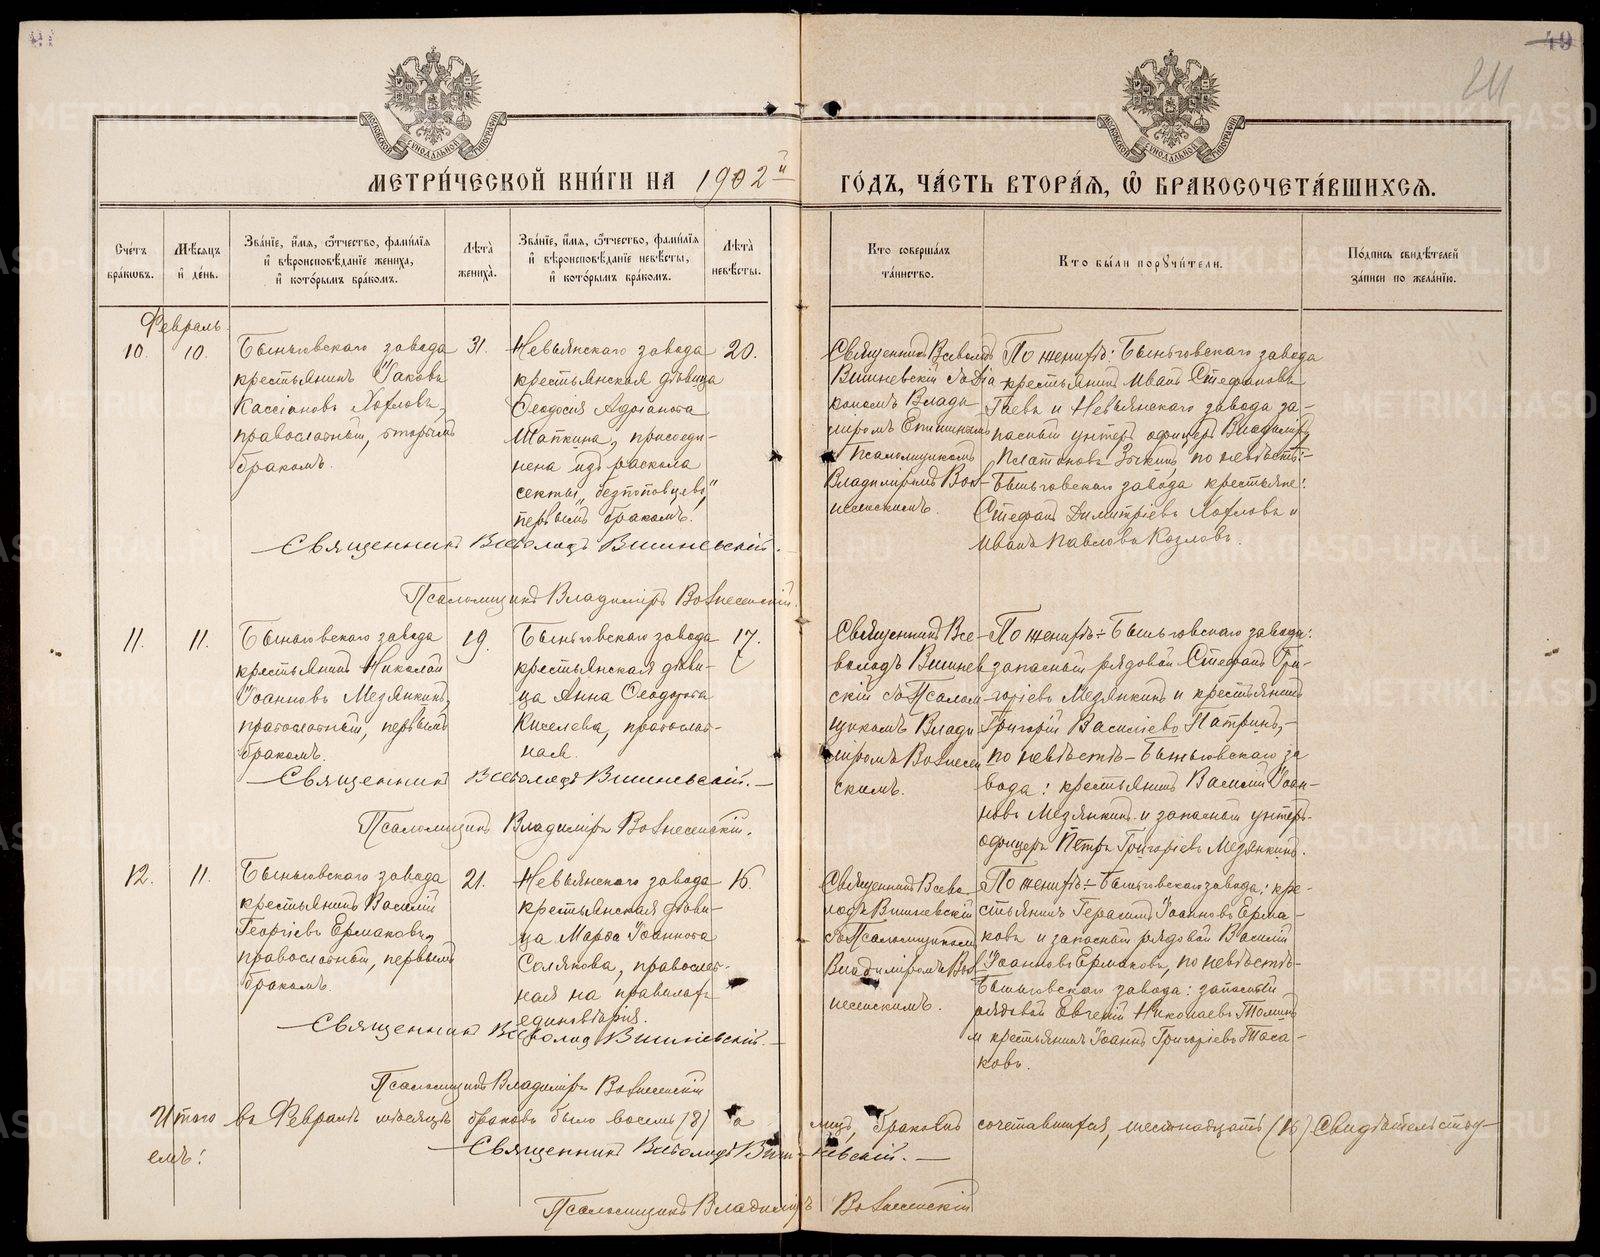 49
211
МОСКОВСКОЙ СѴНОДАЛЬНОЙ ТИПОГРАФІИ
МОСКОВСКОЙ СѴНОДАЛЬНОЙ ТИПОГРАФІИ
МЕТРИ́ЧЕСКОЙ КНИ́ГИ НА 1902й
ГО́ДЪ, ЧА́СТЬ ВТОРА́Я, Ѡ҆ БРАКОСОЧЕТА́ВШИХСѦ.
Сче́тъ
бра́ковъ.
Мѣ́сяцъ
и҆ де́нь.
Зва́нїе, и҆́мя, ѻ҆́тчество, фами́лїя
и҆ вѣроисповѣ́данїе жениха̀,
и҆ кото́рымъ бра́комъ.
Лѣ́та
жениха̀.
Зва́нїе, и҆́мя, ѻ҆́тчество, фами́лїя
и҆ вѣроисповѣ́данїе невѣ́сты,
и҆ кото́рымъ бра́комъ.
Лѣ́та
невѣ́сты.
Кто̀ соверша́лъ
та́инство.
Кто̀ бы́ли порꙋчи́тели.
По́дпись свидѣ́телей
за́писи по жела́нїю.
Февраль.
10.
10.
Быньговскаго завода
крестьянинъ Іаковъ
Кассіановъ Хохловъ,
православный, вторымъ
бракомъ.
31.
Невьянскаго завода
крестьянская дѣвица
Ѳеодосія Адріанова
Шапкина, присоеди-
нена изъ раскола
секты „безпоповцевъ“,
первымъ бракомъ.
20.
Священникъ Всеволодъ
Вишневскій съ Діа
кономъ Влади
міромъ
и Псаломщикомъ
Владиміромъ Воз-
несенскимъ.
По женихѣ: Быньговскаго завода
крестьянинъ Иванъ Стефановъ
Гаевъ и Невьянскаго завода за-
пасный унтеръ офицеръ Владиміръ
Платоновъ Зыкинъ, по невѣстѣ:-
Быньговскаго завода крестьяне:
Стефанъ Димитріевъ Хохловъ и
Иванъ Павловъ Козловъ.
Священникъ Всеволодъ Вишневскій.
Псаломщикъ Владиміръ Вознесенскій.
11.
11.
Быньговскаго завода
крестьянинъ Николай
Іоанновъ Медянкинъ,
православный, первымъ
бракомъ.
19.
Быньговскаго завода
крестьянская дѣви-
ца Анна Ѳеодорова
Киселева, православ-
ная.
17.
Священникъ Все-
володъ Вишнев
скій съ Псалом-
щикомъ Влади
міромъ Вознесен
скимъ.
По женихѣ - Быньговскаго завода:
запасный рядовой Стефанъ Гри-
горіевъ Медянкинъ и крестьянинъ
Григорій Василіевъ Патринъ,-
по невѣстѣ - Быньговскаго за
вода: крестьянинъ Василій Іоан-
новъ Медянкинъ и запасный унтеръ-
офицеръ Петръ Григоріевъ Медянкинъ.
Священникъ Всеволодъ Вишневскій.
Псаломщикъ Владиміръ Вознесенскій.
12.
11.
Быньговскаго завода
крестьянинъ Василій
Георгіевъ Ермаковъ,
православный, первымъ
бракомъ.
21.
Невьянскаго завода
крестьянская дѣви-
ца Марѳа Іоаннова
Солякова, православ-
ная на правилахъ
единовѣрія.
16.
Священникъ Всево
лодъ Вишневскій
съ Псаломщикомъ
Владиміромъ Воз
несенскимъ.
По женихѣ - Быньговскаго завода: кре-
стьянинъ Герасимъ Іоанновъ Ерма-
ковъ и запасный рядовой Василій
Іоанновъ Ермаковъ, по невѣстѣ-
Быньговскаго завода: запасный
рядовой Евгеній Николаевъ Толминъ
и крестьянинъ Іоаннъ Григоріевъ Тоса-
ковъ.
Священникъ Всеволодъ Вишневскій.
Псаломщикъ Владиміръ Вознесенскій
Итого въ Февралѣ мѣсяцѣ браковъ было восемь (8) а лицъ, бракомъ сочетавшихся, шестнадцать (16) Свидѣтельству-
емъ:
Священникъ Всеволодъ Вишневскій.
Псаломщикъ Владиміръ Вознесенскій
METRIKI.GASO-URAL.RU